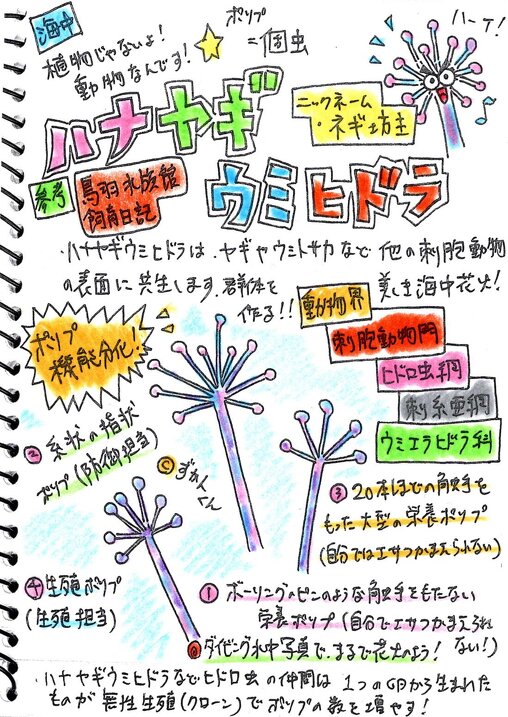 海中
植物じゃないよ!
動物なんです!
ポリプ
=個虫
ハーイ!
ハナヤギ
ウミヒドラ
ニックネーム
・ネギ坊主
参考
鳥羽水族館
飼育日記
・ハナヤギウミヒドラは、ヤギやウミトサカなど他の刺胞動物
の表面に共生します。群体を
作る!!
美しき海中花火!
ポリプ
機能分化!
動物界
刺胞動物門
ヒドロ虫綱
刺糸亜綱
ウミエラヒドラ科
②糸状の指状
ポリプ(防御担当)
©ずかんくん
③20本ほどの触手を
もった大型の栄養ポリプ
(自分ではエサつかまえられない)
④生殖ポリプ
(生殖担当)
①ボーリングのピンのような触手をもたない
栄養ポリプ(自分でエサつかまえられ
ない!)
@ダイビング水中写真で、まるで花火のよう!
・ハナヤギウミヒドラなどヒドロ虫の仲間は1つの卵から生まれた
ものが無性生殖(クローン)でポリプの数を増やす!